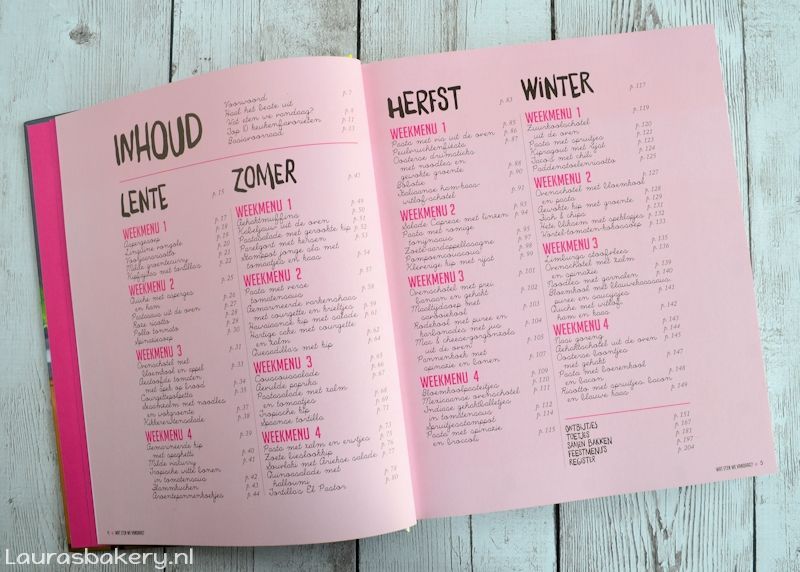 INHOUD
Voorwoord p. 7
Haal het beste uit
Wat eten we vandaag? p. 8
Top 10 keukenfavorieten p. 11
Basisvoorraad p. 13
LENTE p. 15
WEEKMENU 1
Aspergesoep p. 17
Linguine vongole p. 18
Voorjaarsrisotto p. 19
Milde groentecurry p. 20
Kipfajitas met tortilla's p. 22
WEEKMENU 2 p. 25
Quiche met asperges
en ham p. 26
Pastasaus uit de oven p. 28
Rode risotto p. 29
Pollo tonnato p. 30
Spinaziesoep p. 31
WEEKMENU 3
Ovenschotel met
bloemkool en appel
Geroosterde tomaten
met spek op brood
Courgettepasta
met noedels
Kikkererwtensalade p. 38
WEEKMENU 4 p. 39
Gemarineerde kip
met spaghetti p. 40
Milde nasicurry p. 41
Tropische witte bonen
in tomatensaus p. 42
Flammkuchen p. 43
Groentepannenkoekjes p. 44
ZOMER p. 47
WEEKMENU 1
Gehaktmuffins p. 49
Kabeljauw uit de oven p. 50
Pastasalade met gerookte kip p. 51
Parelgort met kersen p. 52
Stamppot jonge sla met
tomaatjes en kaas p. 54
WEEKMENU 2
Pasta met verse
tomatensaus p. 57
Gemarineerde varkenshaas
met courgette en krieltjes p. 58
Hawaiaanse kip met salade p. 59
Hartige cake met courgette p. 61
en zalm p. 62
Quesadilla's met kip p. 64
WEEKMENU 3 p. 65
Couscoussalade p. 66
Gevulde paprika p. 67
Pastasalade met zalm p. 68
en tomaatjes
Tropische kip p. 69
Spaanse tortilla p. 71
WEEKMENU 4 p. 73
Pasta met zalm en erwtjes p. 75
Zoete bieslookkip p. 76
Souvlaki met Griekse salade p. 77
Quinoasalade met
halloumi p. 78
Tortilla's El Pastor p. 80
HERFST p. 83
WEEKMENU 1 p. 85
Pasta met vis uit de oven p. 86
Peulvruchtenfiesta p. 87
Oosterse drumsticks
met noodles en
gewokte groente p. 88
Bobotie p. 90
Italiaanse ham-kaas-
witlofschotel p. 91
WEEKMENU 2 p. 93
Salade Caprese met linzen p. 94
Pasta met romige
tonijnsaus
Zoete-aardappellasagne
Pompoencouscous
Kleverige kip met rijst
WEEKMENU 3
Ovenschotel met prei
banaan en gehakt
Maaltijdsoep met
savooikool
Rodekool met puree en
karbonades met jus p. 104
Mac & cheese-gorgonzola
uit de oven p. 105
Pannenkoek met
spinazie en bonen p. 107
WEEKMENU 4 p. 109
Bloemkoolpasteitjes p. 110
Mexicaanse ovenschotel p. 111
Indiase gehaktballetjes
in tomatensaus p. 112
Spruitjesstamppot p. 114
Pasta met spinazie
en broccoli p. 115
WINTER p. 117
WEEKMENU 1 p. 119
Zuurkoolschotel
uit de oven p. 120
Pasta met spruitjes p. 121
Kipragout met rijst p. 123
Tacos met chili p. 124
Paddenstoelenrisotto p. 125
WEEKMENU 2 p. 127
Ovenschotel met bloemkool
en pasta p. 128
Gewokte kip met groente p. 129
Fish & chips p. 131
Hete bliksem met speklapjes p. 132
Wortel-tomaten-kokossoep p. 133
WEEKMENU 3 p. 135
Limburgs stoofvlees p. 136
Ovenschotel met zalm
en spinazie p. 138
Noodles met garnalen p. 139
Bloemkool met blauwekaassaus
puree en saucijsjes p. 141
Quiche met witlof,
ham en kaas p. 142
WEEKMENU 4 p. 143
Nasi goreng p. 144
Gehaktschotel uit de oven p. 145
Oosterse boontjes
met gehakt p. 146
Pasta met boerenkool
en bacon p. 148
Risotto met spruitjes, bacon
en blauwe kaas p. 149
ONTBIJTJES p. 151
TOETJES p. 167
SAMEN BAKKEN p. 181
FEESTMENU'S p. 197
REGISTER p. 204
WAT ETEN WE VANDAAG?
WAT ETEN WE VANDAAG? 5
Laurasbakery.nl